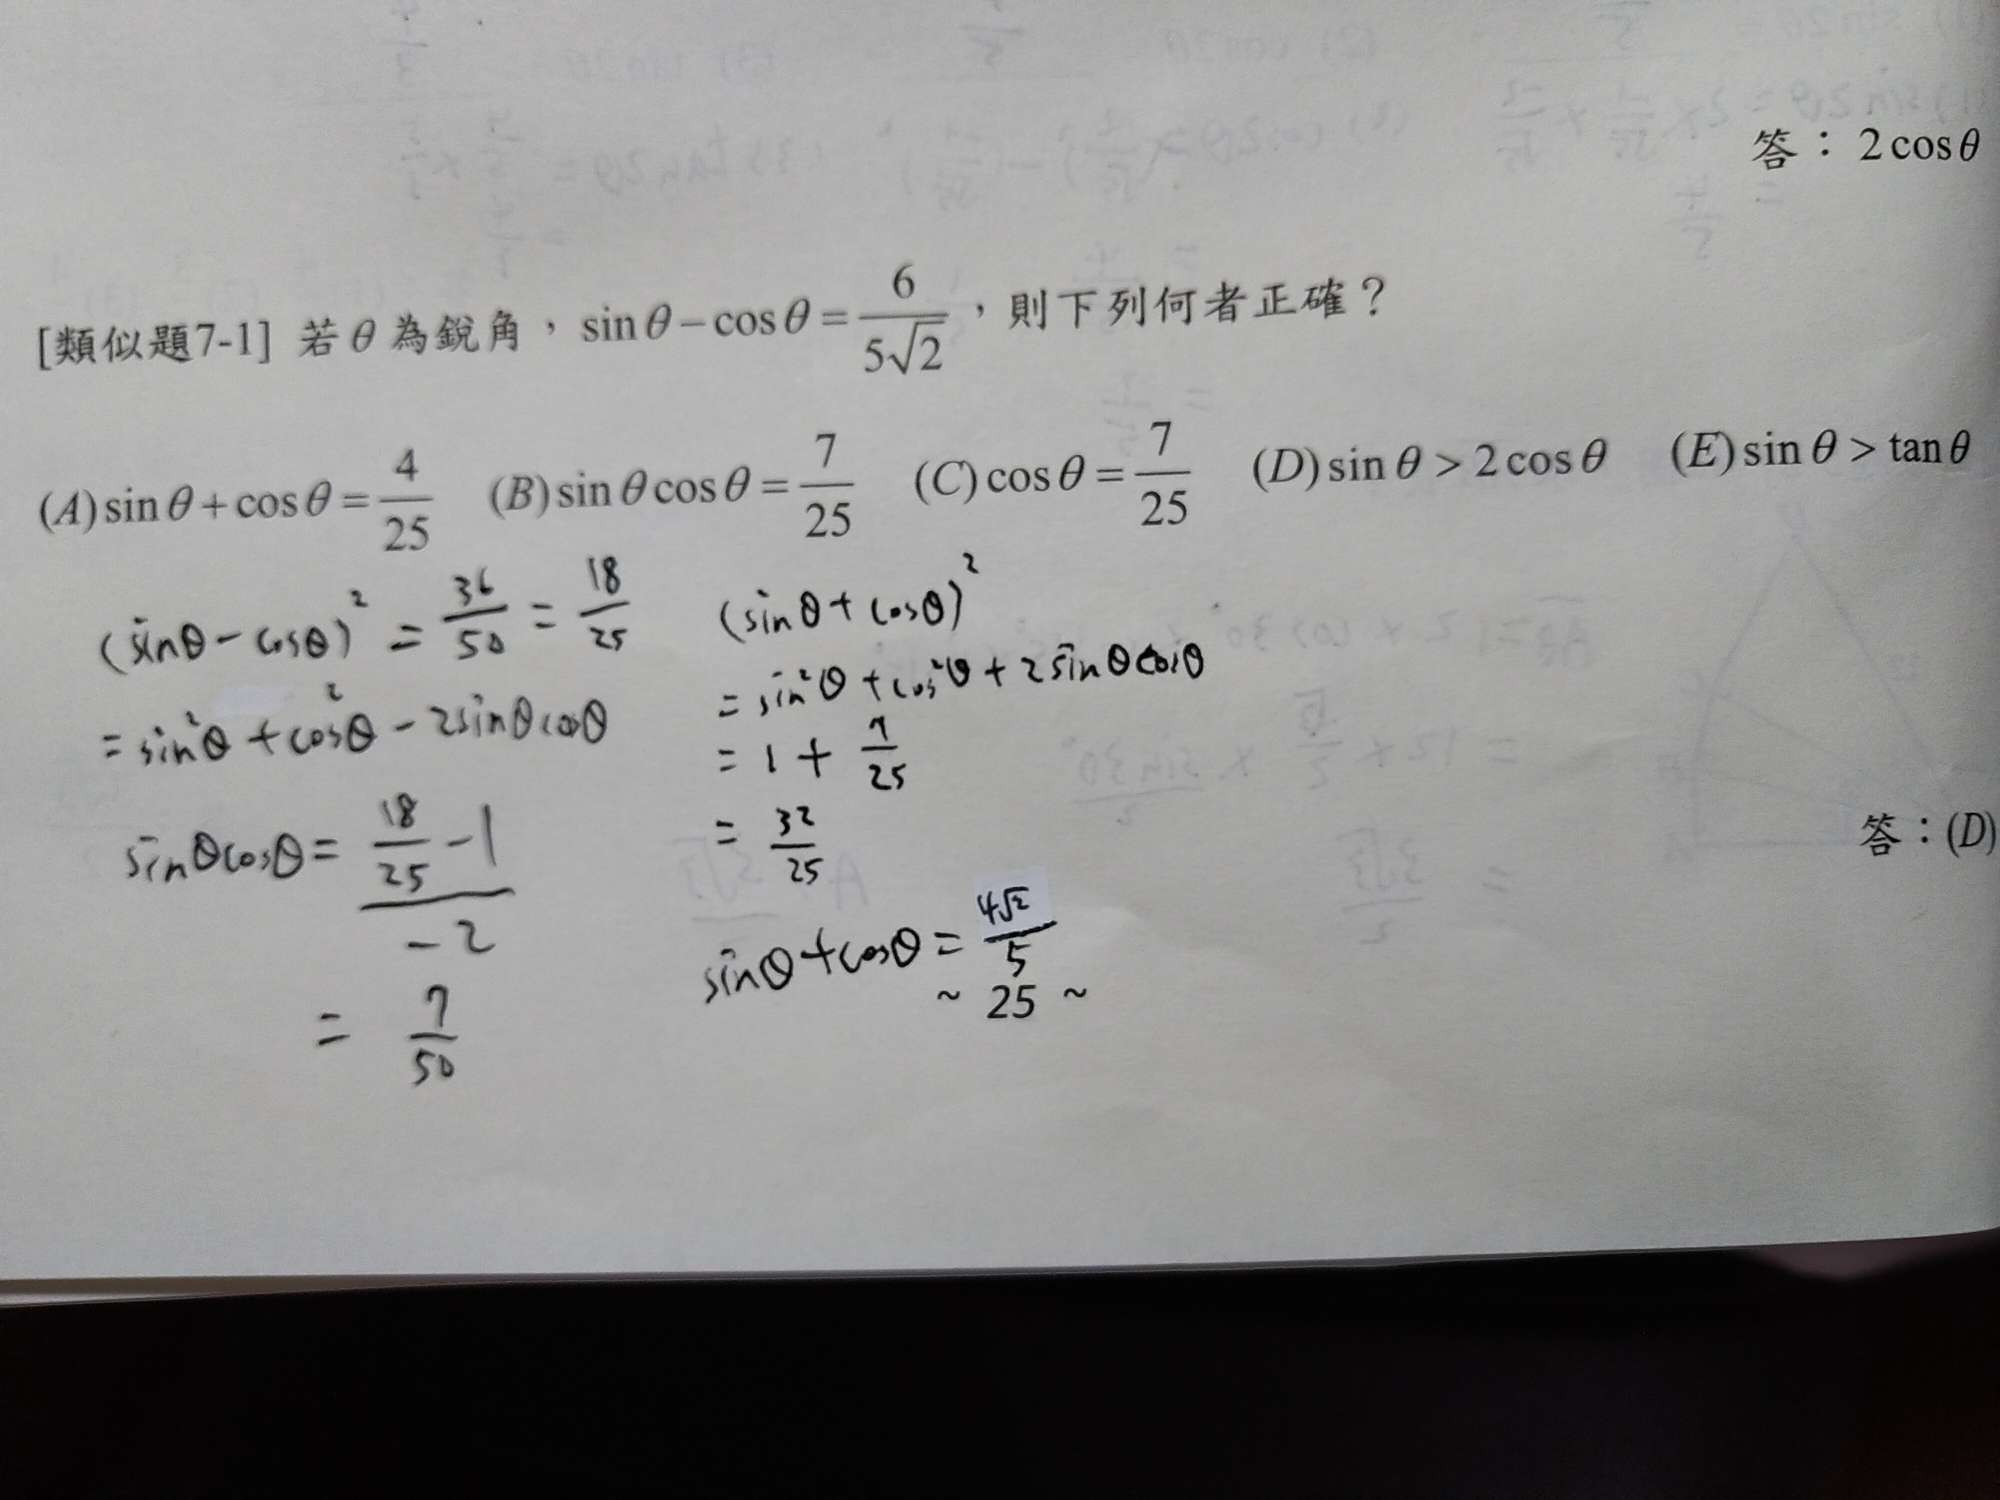 答：2cosθ
[類似題7-1] 若θ為銳角，sinθ−cosθ=6/(5√2)，則下列何者正確？
(A)sinθ+cosθ=4/25 (B)sinθcosθ=7/25 (C)cosθ=7/25 (D)sinθ>2cosθ (E)sinθ>tanθ
(sinθ−cosθ)²=36/50=18/25
=sin²θ+cos²θ−2sinθcosθ
sinθcosθ=(18/25−1)/(−2)
=7/50
(sinθ+cosθ)²
=sin²θ+cos²θ+2sinθcosθ
=1+7/25
=32/25
sinθ+cosθ=4√2/5
~ 25 ~
答：(D)